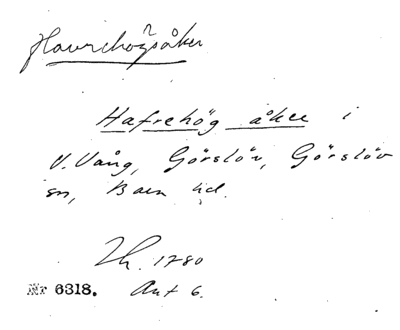 Havrehögsåker
Hafrehög åker i
V. Vång, Görslöv, Görslöv
sn, Bara hd.
Lh. 1780
Nr 6318. Akt 6.